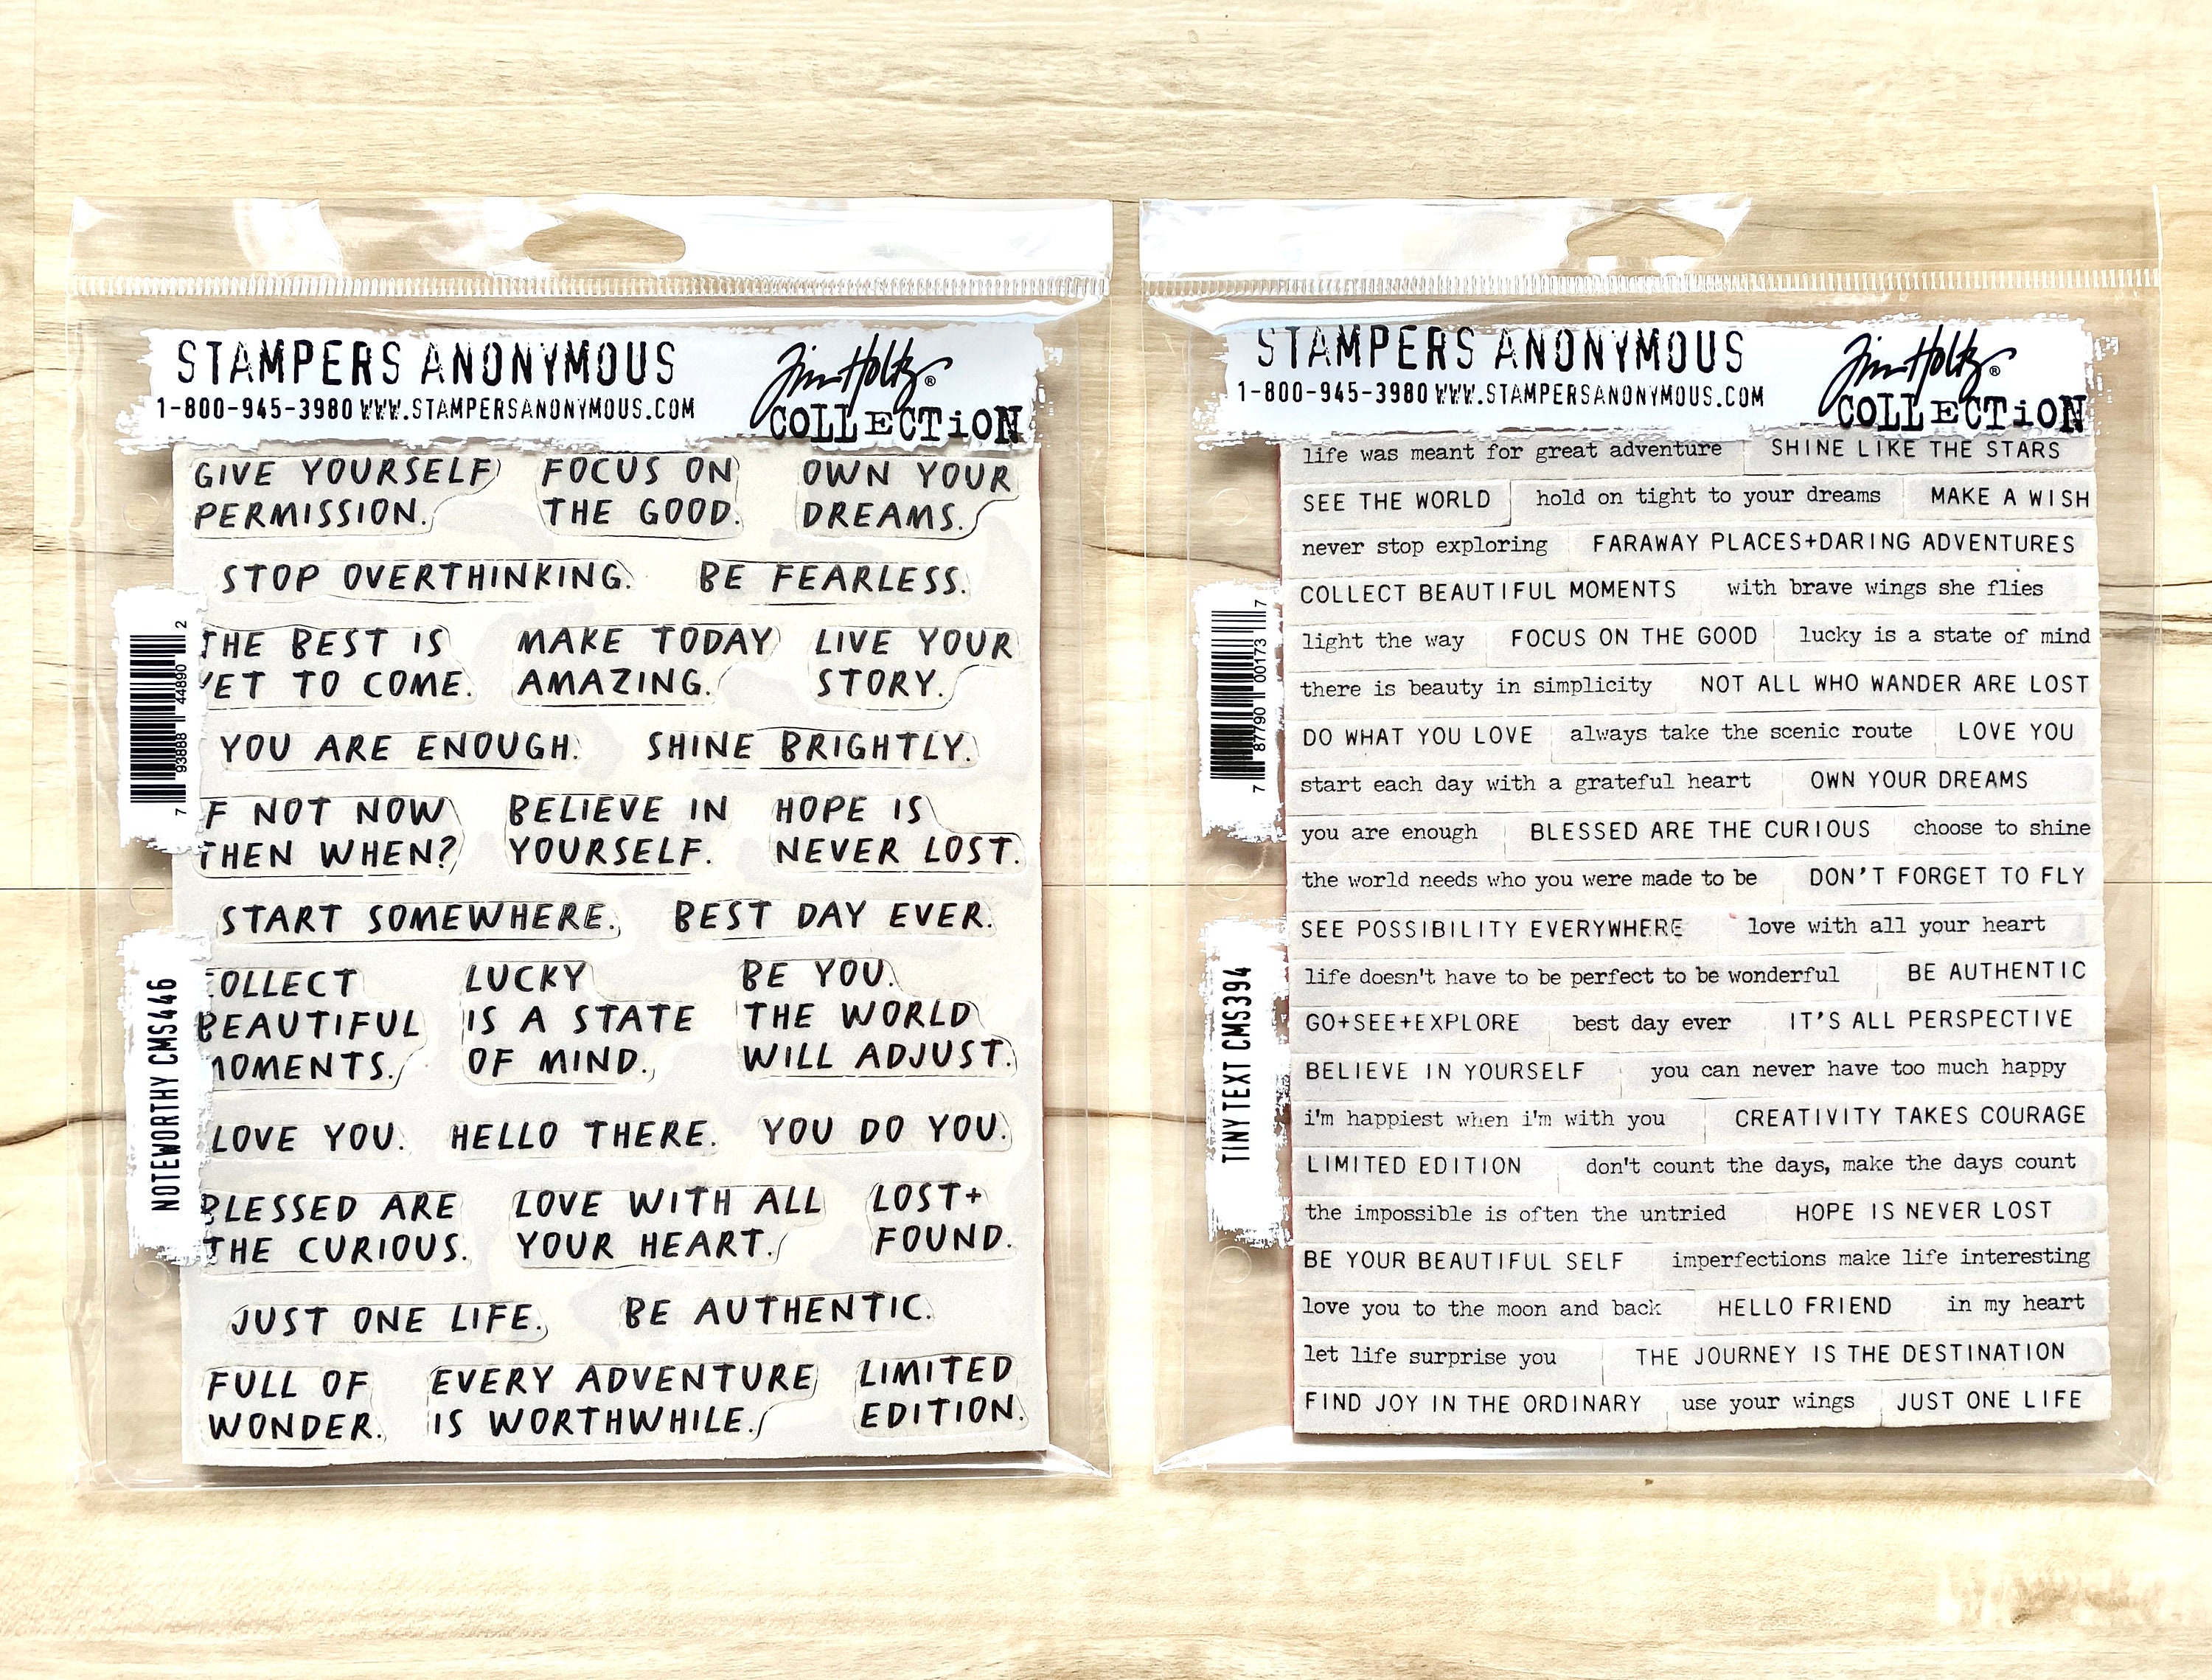 STAMPERS ANONYMOUS
1-800-945-3980 WWW.STAMPERSANONYMOUS.COM
Tim Holtz®
COLLECTiON
GIVE YOURSELF
PERMISSION.
FOCUS ON
THE GOOD.
OWN YOUR
DREAMS.
STOP OVERTHINKING.
BE FEARLESS.
THE BEST IS
YET TO COME.
MAKE TODAY
AMAZING.
LIVE YOUR
STORY.
YOU ARE ENOUGH.
SHINE BRIGHTLY.
F NOT NOW
THEN WHEN?
BELIEVE IN
YOURSELF.
HOPE IS
NEVER LOST.
START SOMEWHERE.
BEST DAY EVER.
COLLECT
BEAUTIFUL
MOMENTS.
LUCKY
IS A STATE
OF MIND.
BE YOU.
THE WORLD
WILL ADJUST.
LOVE YOU.
HELLO THERE.
YOU DO YOU.
BLESSED ARE
THE CURIOUS.
LOVE WITH ALL
YOUR HEART.
LOST+
FOUND.
JUST ONE LIFE.
BE AUTHENTIC.
FULL OF
WONDER.
EVERY ADVENTURE
IS WORTHWHILE.
LIMITED
EDITION.
7 93888 44890 2
NOTEWORTHY CMS446
STAMPERS ANONYMOUS
1-800-945-3980 WWW.STAMPERSANONYMOUS.COM
Tim Holtz®
COLLECTiON
life was meant for great adventure SHINE LIKE THE STARS
SEE THE WORLD hold on tight to your dreams MAKE A WISH
never stop exploring FARAWAY PLACES+DARING ADVENTURES
COLLECT BEAUTIFUL MOMENTS with brave wings she flies
light the way FOCUS ON THE GOOD lucky is a state of mind
there is beauty in simplicity NOT ALL WHO WANDER ARE LOST
DO WHAT YOU LOVE always take the scenic route LOVE YOU
start each day with a grateful heart OWN YOUR DREAMS
you are enough BLESSED ARE THE CURIOUS choose to shine
the world needs who you were made to be DON'T FORGET TO FLY
SEE POSSIBILITY EVERYWHERE love with all your heart
life doesn't have to be perfect to be wonderful BE AUTHENTIC
GO+SEE+EXPLORE best day ever IT'S ALL PERSPECTIVE
BELIEVE IN YOURSELF you can never have too much happy
i'm happiest when i'm with you CREATIVITY TAKES COURAGE
LIMITED EDITION don't count the days, make the days count
the impossible is often the untried HOPE IS NEVER LOST
BE YOUR BEAUTIFUL SELF imperfections make life interesting
love you to the moon and back HELLO FRIEND in my heart
let life surprise you THE JOURNEY IS THE DESTINATION
FIND JOY IN THE ORDINARY use your wings JUST ONE LIFE
7 87790 00173 7
TINY TEXT CMS394